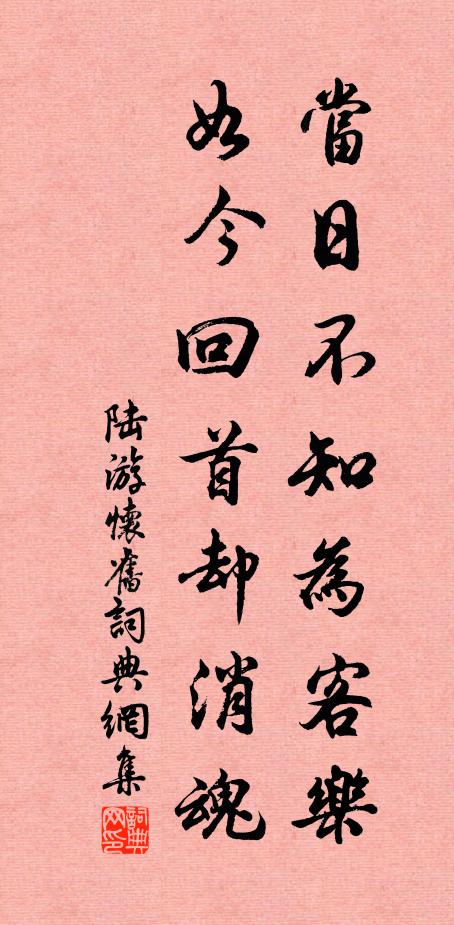 當日不知為客樂
如今回首却消魂
陸游懷舊詞典網集
詞典网印